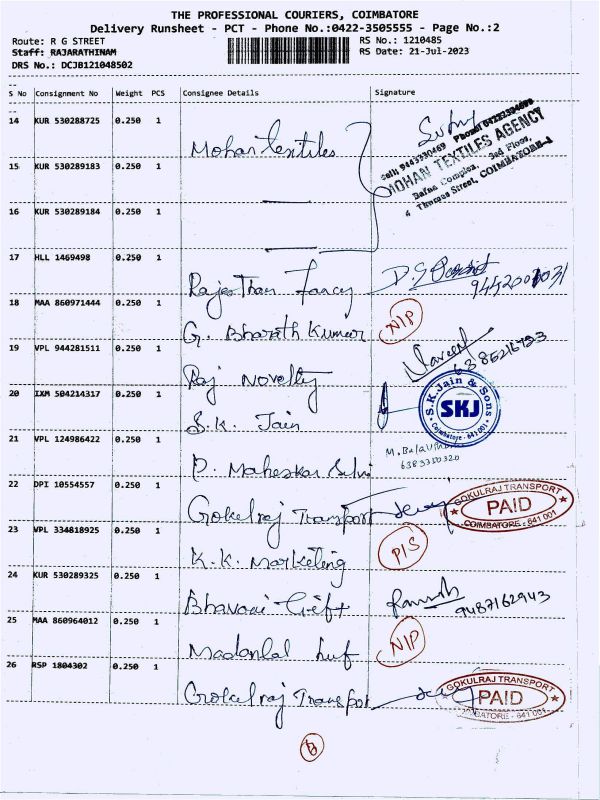 THE PROFESSIONAL COURIERS, COIMBATORE
Delivery Runsheet - PCT - Phone No.:0422-3505555 - Page No.:2
Route: R G STREET RS No.: 1210485
Staff: RAJARATHINAM RS Date: 21-Jul-2023
DRS No.: DCJB121048502
S No Consignment No Weight PCS Consignee Details Signature
14 KUR 530288725 0.250 1 Mohan textiles
MOHAN TEXTILES AGENCY
Bafna Complex, 3rd Floor,
4 Thomas Street, COIMBATORE-1
15 KUR 530289183 0.250 1
16 KUR 530289184 0.250 1
17 HLL 1469498 0.250 1 Rajasthan Fancy
18 MAA 860971444 0.250 1 G. Bharath Kumar N/P
19 VPL 944281511 0.250 1 Raj Novelty Naveen 6385216793
20 IXM 504214317 0.250 1 S.K. Jain
S.K. Jain & Sons
SKJ
Coimbatore - 641 001
21 VPL 124986422 0.250 1 P. Maheskar Selvi 6383350320
22 DPI 10554557 0.250 1 Gokulraj Transport
GOKULRAJ TRANSPORT
PAID
COIMBATORE - 641 001
23 VPL 334818925 0.250 1 K.K. Marketing P/S
24 KUR 530289325 0.250 1 Bhavani Gift Ramesh 9487162943
25 MAA 860964012 0.250 1 Madanlal huf N/P
26 RSP 1804302 0.250 1 Gokulraj Transport
GOKULRAJ TRANSPORT
PAID
COIMBATORE - 641 001